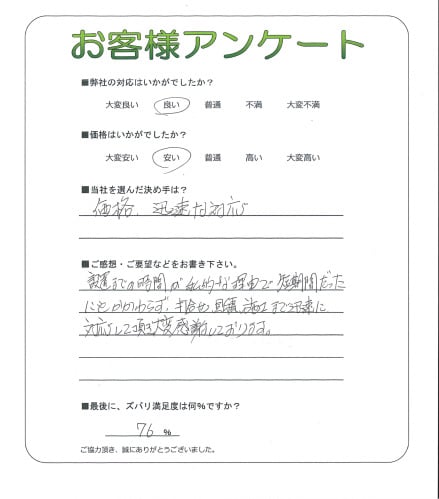 お客様アンケート
■弊社の対応はいかがでしたか?
大変良い 良い 普通 不満 大変不満
■価格はいかがでしたか?
大変安い 安い 普通 高い 大変高い
■当社を選んだ決め手は?
価格、迅速な対応
■ご感想・ご要望などをお書き下さい。
設置までの時間が私的な理由で短期間だった
にもかかわらず、打合せ、見積、施工まで迅速に
対応して頂き大変感謝しております。
■最後に、ズバリ満足度は何%ですか?
76 %
ご協力頂き、誠にありがとうございました。